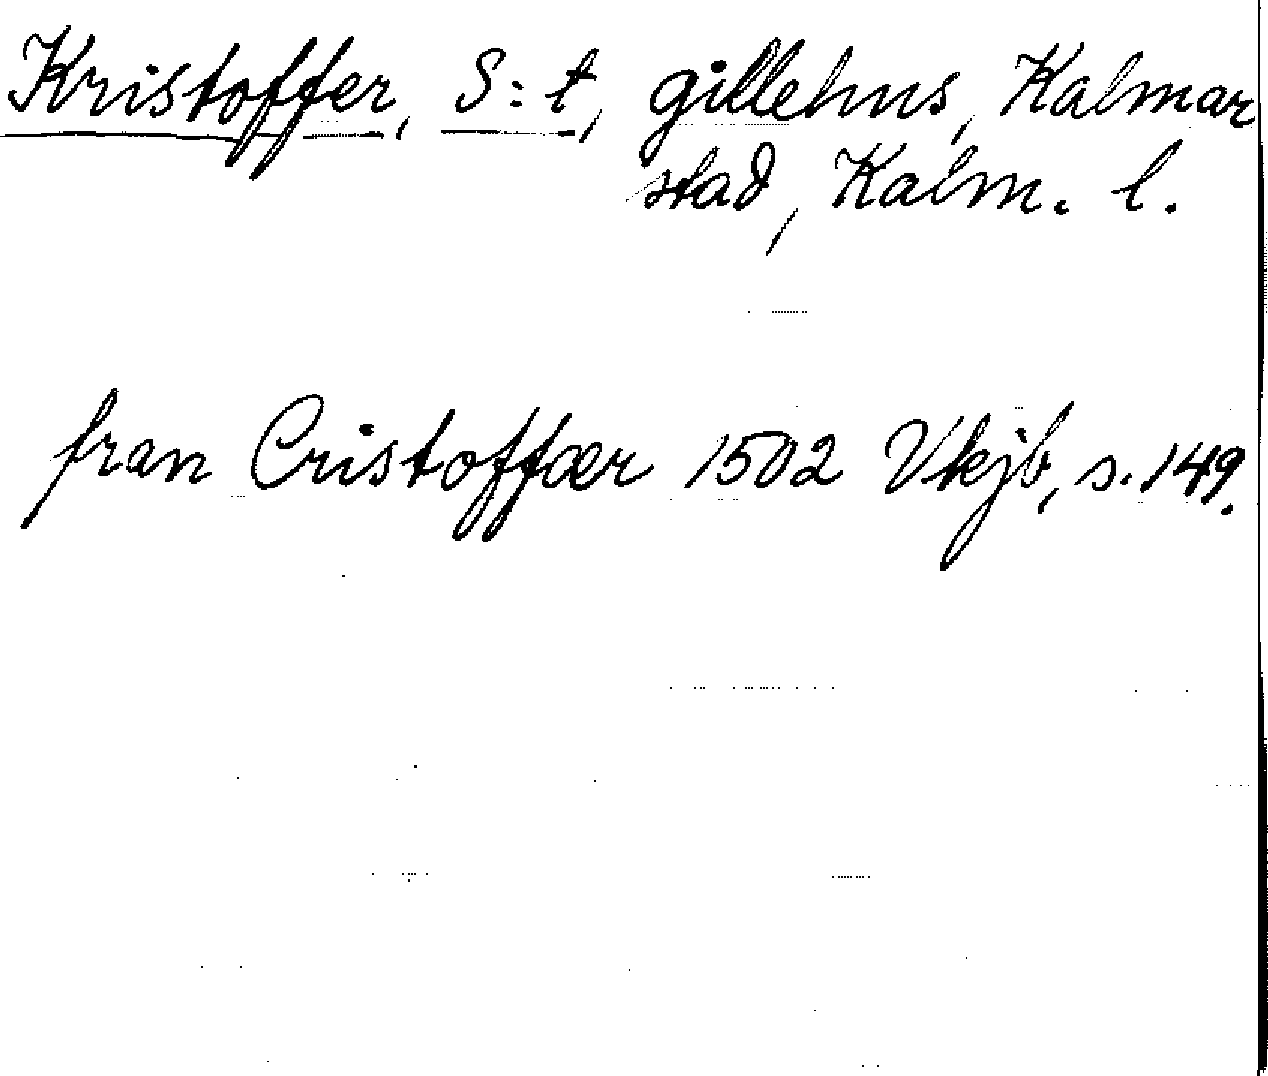 Kristoffer, S:t, gillehus, Kalmar
stad, Kalm. l.
fran Cristoffær 1502 Vkjb, s. 149.